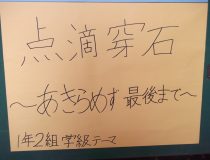 点滴穿石
〜あきらめず 最後まで〜
1年2組 学級テーマ